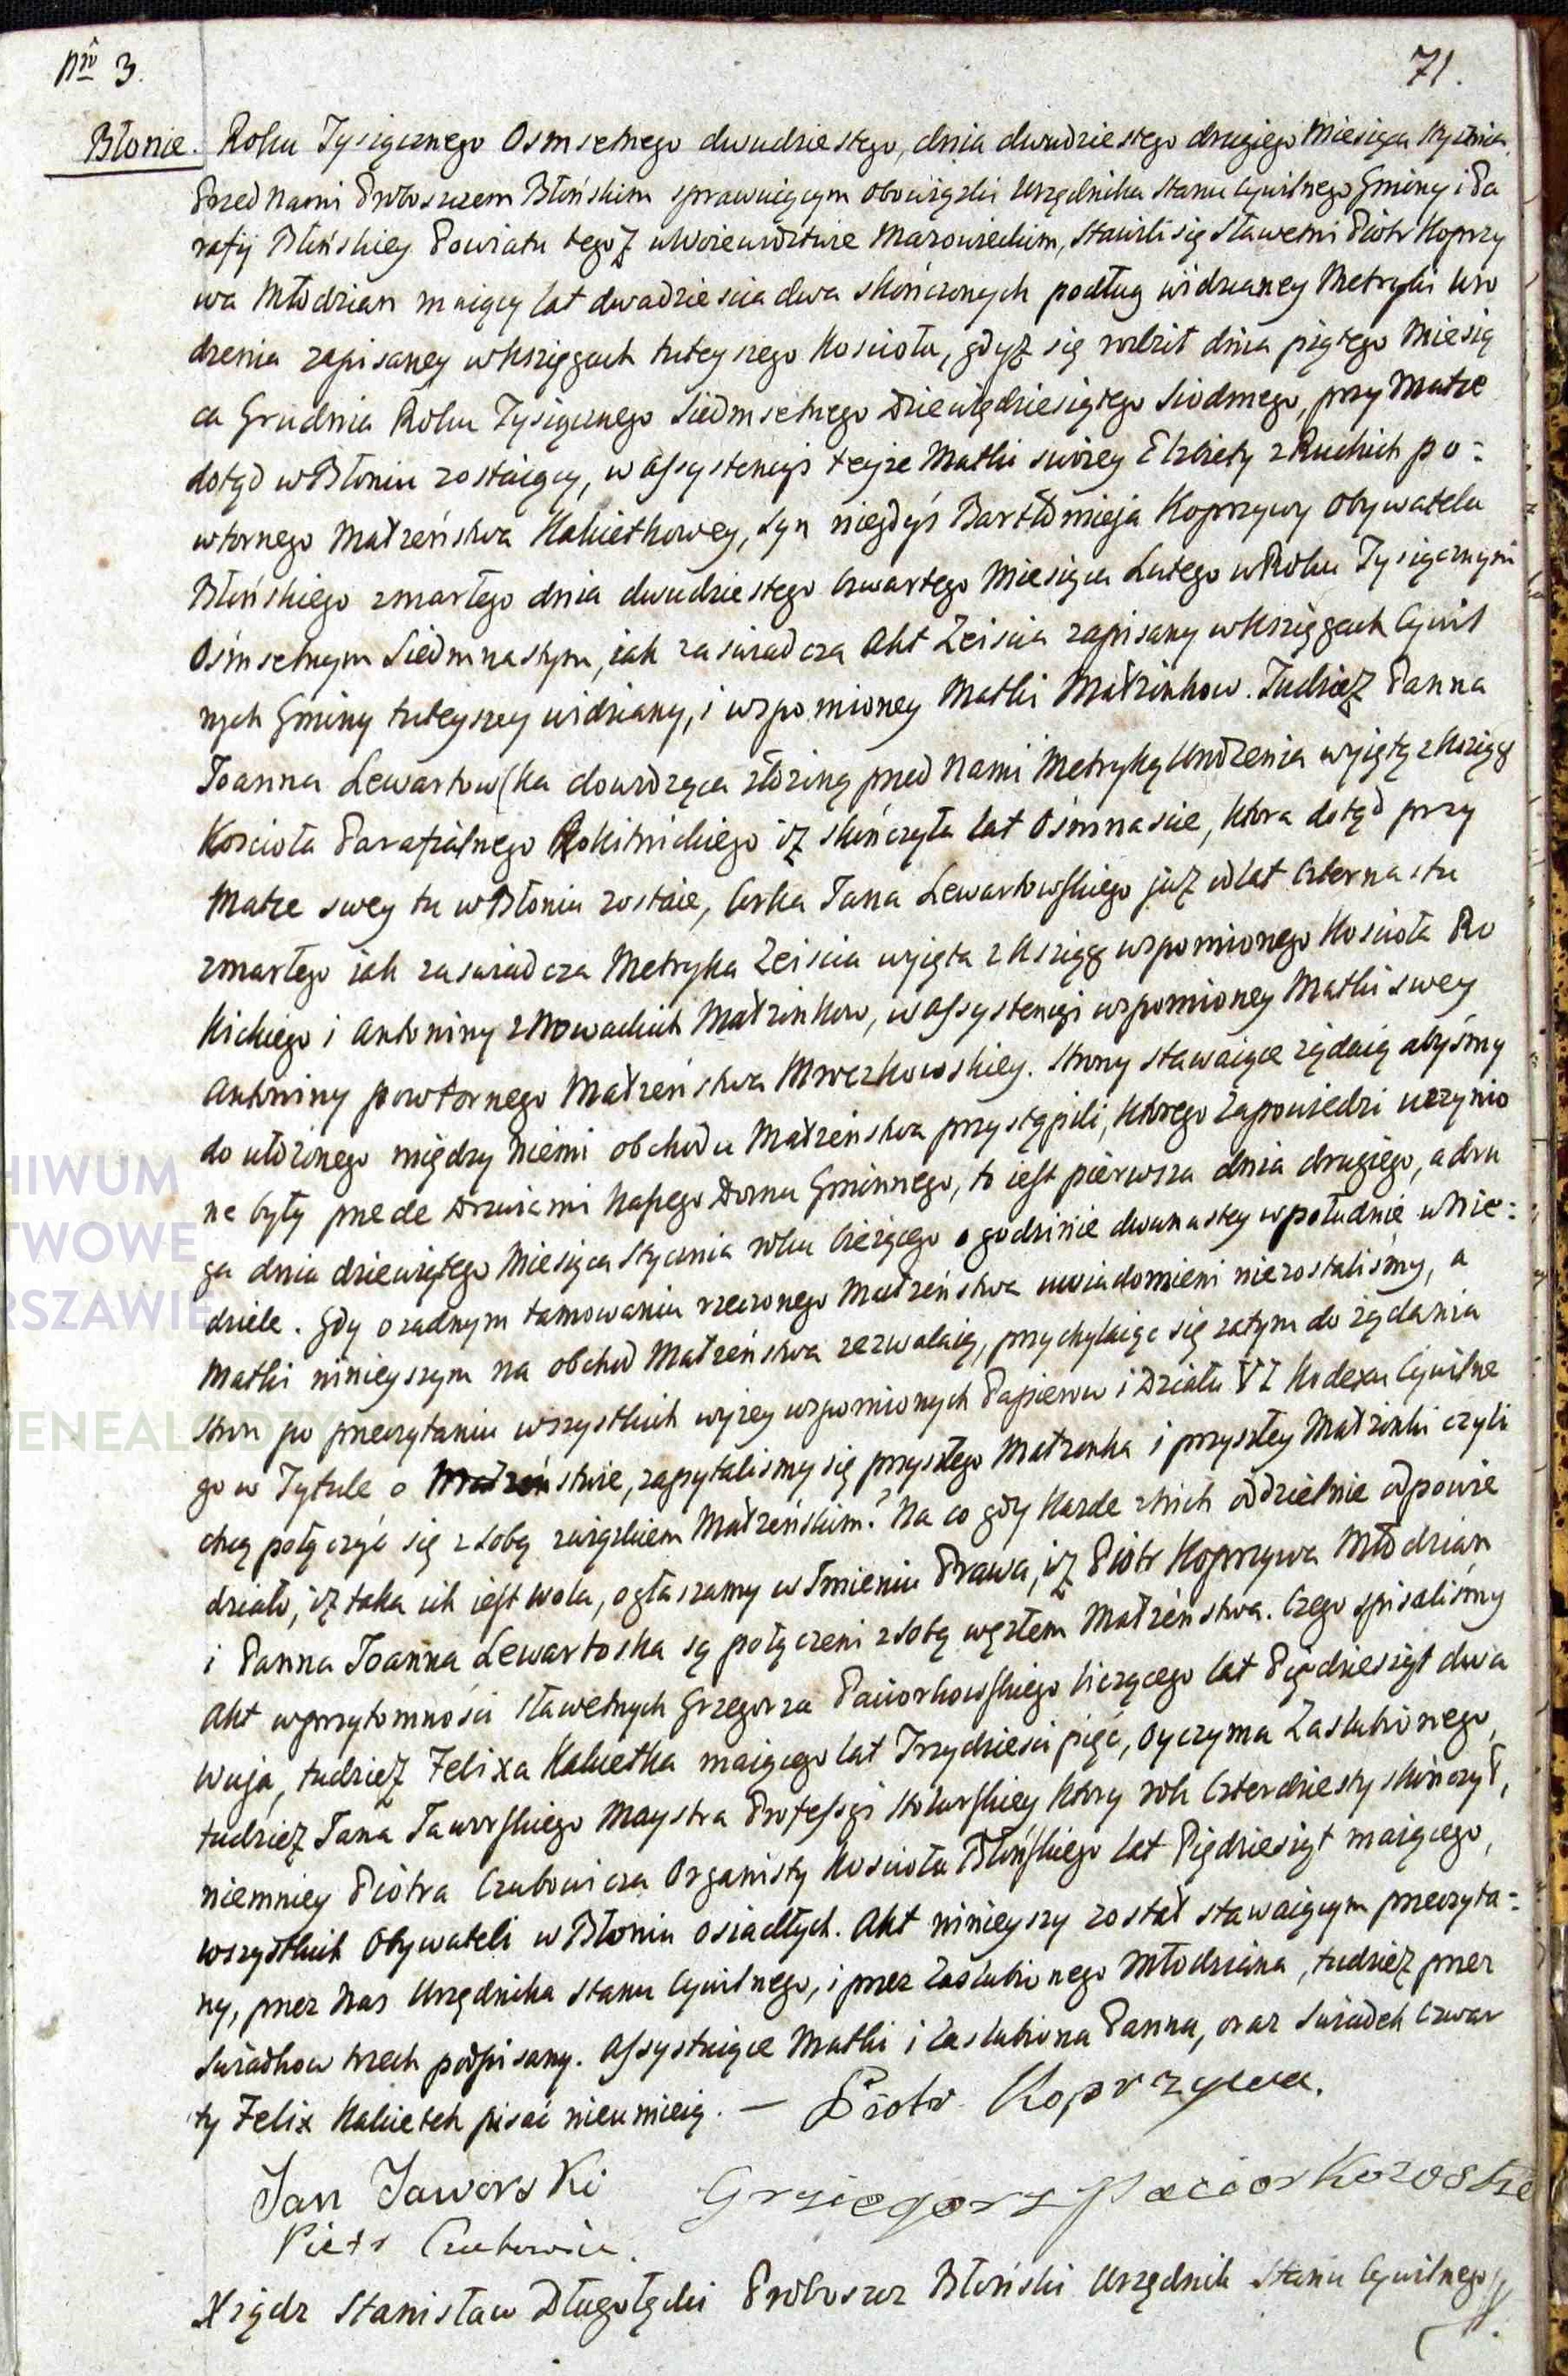 Nro 3.
71.
Błonie.
Roku Tysiącznego Osmsetnego dwudziestego, dnia dwudziestego drugiego Miesiąca Stycznia.
Przed Nami Proboszczem Błońskim sprawuiącym obowiązki Urzędnika Stanu Cywilnego Gminy i Pa
rafij Błońskiey Powiatu tegoż w Woiewództwie Mazowieckim, stawili się Sławetni Piotr Koprzy
wa Młodzian maiący lat dwadziescia dwa skończonych podług widzianey Metryki Uro
dzenia zapisaney w Księgach tuteyszego Kościoła, gdyż się rodził dnia piątego Miesią
ca Grudnia Roku Tysiącznego Siedmsetnego Dziewiędziesiątego Siodmego, przy Matce
dotąd w Błoniu zostaiący, w Assystencyi teyże Matki swoiey Elżbiety z Ruckich po=
wtornego Małżeństwa Kakietkowey, syn niegdyś Bartłomieja Koprzywy Obywatela
Błońskiego zmarłego dnia dwudziestego Czwartego Miesiąca Lutego w Roku Tysiącznym
Ośmsetnym Siedmnastym, iak zaswiadcza Akt Zeiscia zapisany w Księgach Cywil
nych Gminy tuteyszey widziany, i wspomioney Matki Małżonkow. Tudzież Panna
Joanna Lewartowska dowodząca złożoną przed Nami Metryką Urodzenia wyiętą z Ksiąg
Kościoła Parafialnego Rokitnickiego iż skończyła lat Ośmnascie, która dotąd przy
Matce swey tu w Błoniu zostaie, Corka Jana Lewartowskiego już od lat Czternastu
zmarłego iak zaswiadcza Metryka Zeiscia wyięta z Ksiąg wspomionego Kościoła Ro
kickiego i Antoniny z Nowackich Małżonkow, w Assystencyi wspomioney Matki swey
Antoniny powtornego Małżeństwa Mroczkowskiey. Strony stawaiące żądaią abyśmy
do ułożonego między Niemi obchodu Małżeństwa przystąpili, którego Zapowiedzi uczynio
ne były przede Drzwiami Naszego Domu Gminnego, to iest pierwsza dnia drugiego, a dru
ga dnia dziewiątego Miesiąca Stycznia roku bieżącego o godzinie dwunastey w południe w Nie=
dziele. Gdy o żadnym tamowaniu rzeczonego Małżeństwa uwiadomieni niezostaliśmy, a
Matki ninieyszym na obchod Małżeństwa zezwalaią, przychylaiąc się zatym do żądania
Stron po przeczytaniu wszystkich wyżey wspomionych Papierow i Działu VI Kodexu Cywilne
go w Tytule o Małżeństwie, zapytalismy się przyszłego Małżonka i przyszłey Małżonki czyli
chcą połączyć się z sobą związkiem Małżeńskim? Na co gdy każde z nich oddzielnie odpowie
działo, iż taka ich iest wola, ogłaszamy w Imieniu Prawa, iż Piotr Koprzywa Młodzian
i Panna Joanna Lewartoska są połączeni z sobą węzłem Małżeństwa. Czego spisaliśmy
Akt w przytomności Sławetnych Grzegorza Paciorkowskiego liczącego lat Piędziesiąt dwa
Wuja, tudzież Felixa Kakietka maiącego lat Trzydzieści pięć, Oyczyma Zaslubionego,
tudzież Jana Jaworskiego Maystra Professyi Stolarskiey który rok Czterdziesty skończył,
niemniey Piotra Czubowicza Organisty Kościoła Błońskiego lat Piędziesiąt maiącego,
wszystkich Obywateli w Błoniu osiadłych. Akt ninieyszy został stawaiącym przeczyta=
ny, przez Nas Urzędnika Stanu Cywilnego, i przez Zaslubionego Młodziana, tudzież przez
Swiadkow trzech podpisany. Assystuiące Matki i Zaslubiona Panna, oraz Swiadek czwar
ty Felix Kakietek pisać nieumieią. — Piotr Koprzywa.
Jan Jaworski Grzegorz Paciorkowski
Piotr Czubowicz.
Xiądz Stanisław Długołęcki Proboszcz Błoński Urzędnik Stanu Cywilnego
HIWUM
TWOWE
RSZAWIE
ENEALODZY